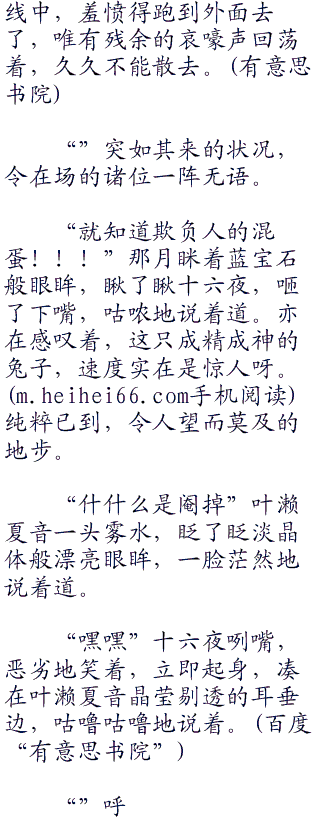 线中，羞愤得跑到外面去
了，唯有残余的哀嚎声回荡
着，久久不能散去。(有意思
书院)
“”突如其来的状况，
令在场的诸位一阵无语。
“就知道欺负人的混
蛋！！！”那月眯着蓝宝石
般眼眸，瞅了瞅十六夜，咂
了下嘴，咕哝地说着道。亦
在感叹着，这只成精成神的
兔子，速度实在是惊人呀。
(m.heihei66.com手机阅读)
纯粹已到，令人望而莫及的
地步。
“什什么是阉掉”叶濑
夏音一头雾水，眨了眨淡晶
体般漂亮眼眸，一脸茫然地
说着道。
“嘿嘿”十六夜咧嘴，
恶劣地笑着，立即起身，凑
在叶濑夏音晶莹剔透的耳垂
边，咕噜咕噜地说着。(百度
“有意思书院”)
“”呼